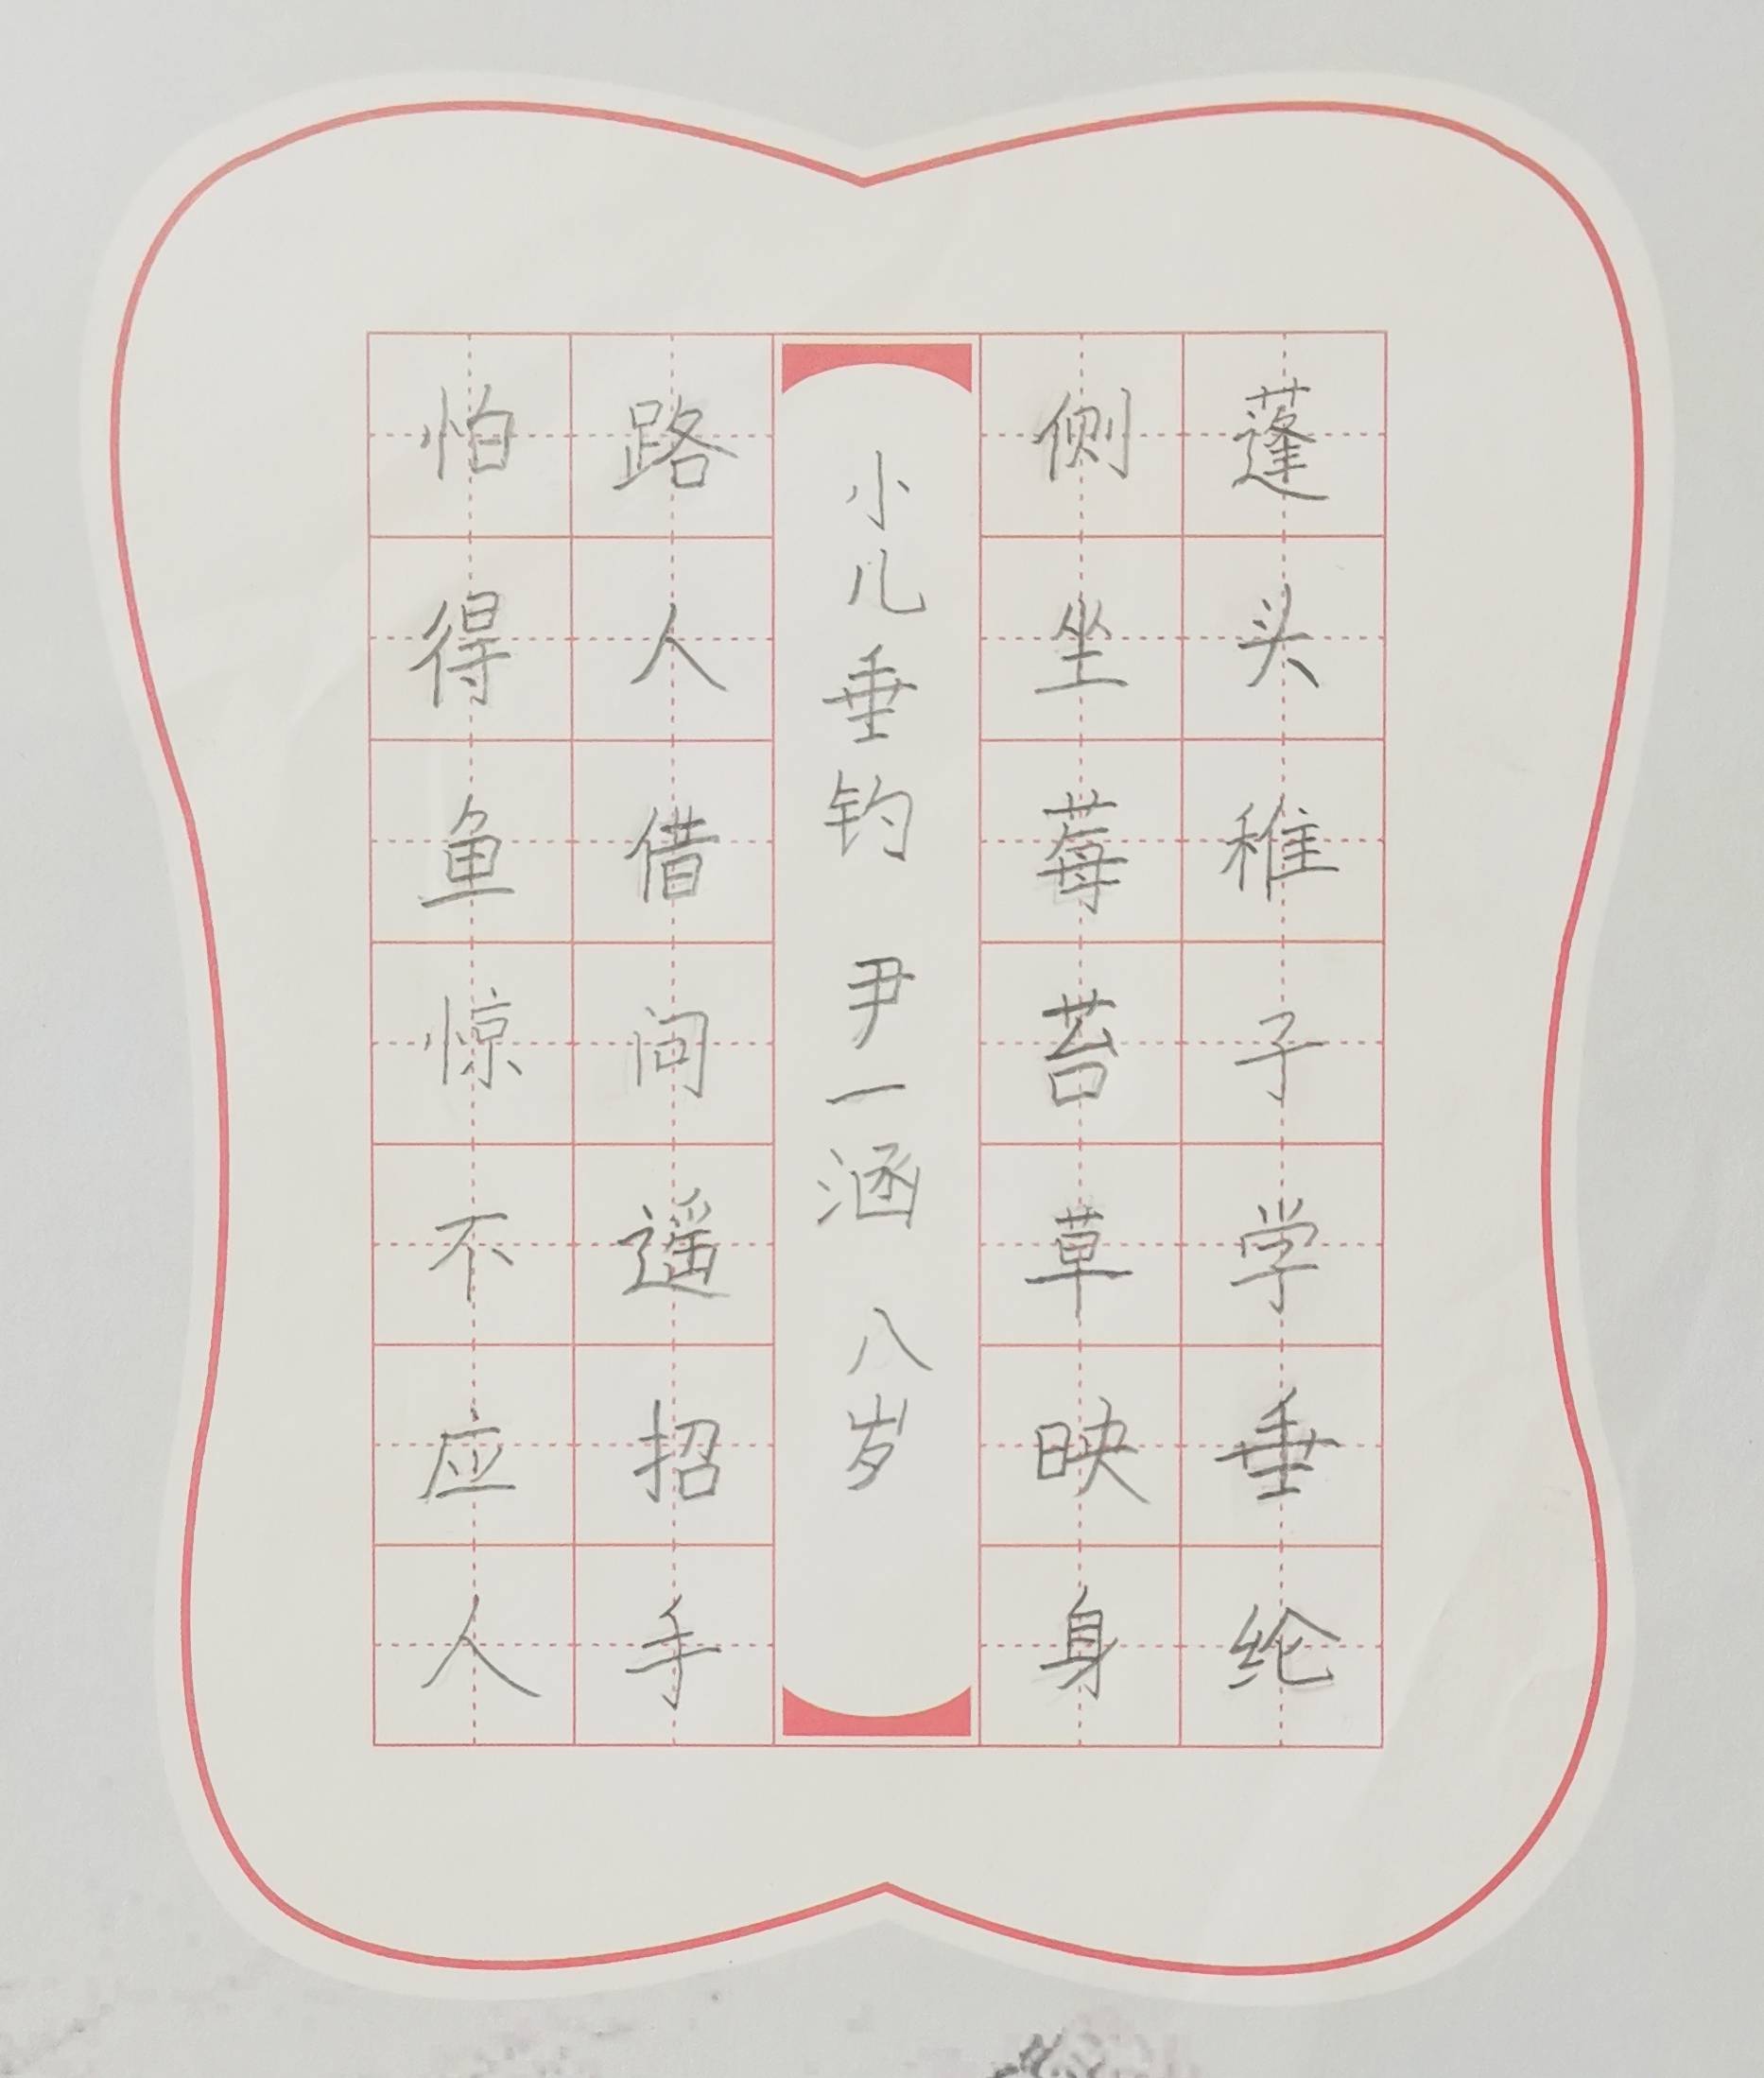 蓬头稚子学垂纶
侧坐莓苔草映身
小儿垂钓 尹一涵 八岁
路人借问遥招手
怕得鱼惊不应人